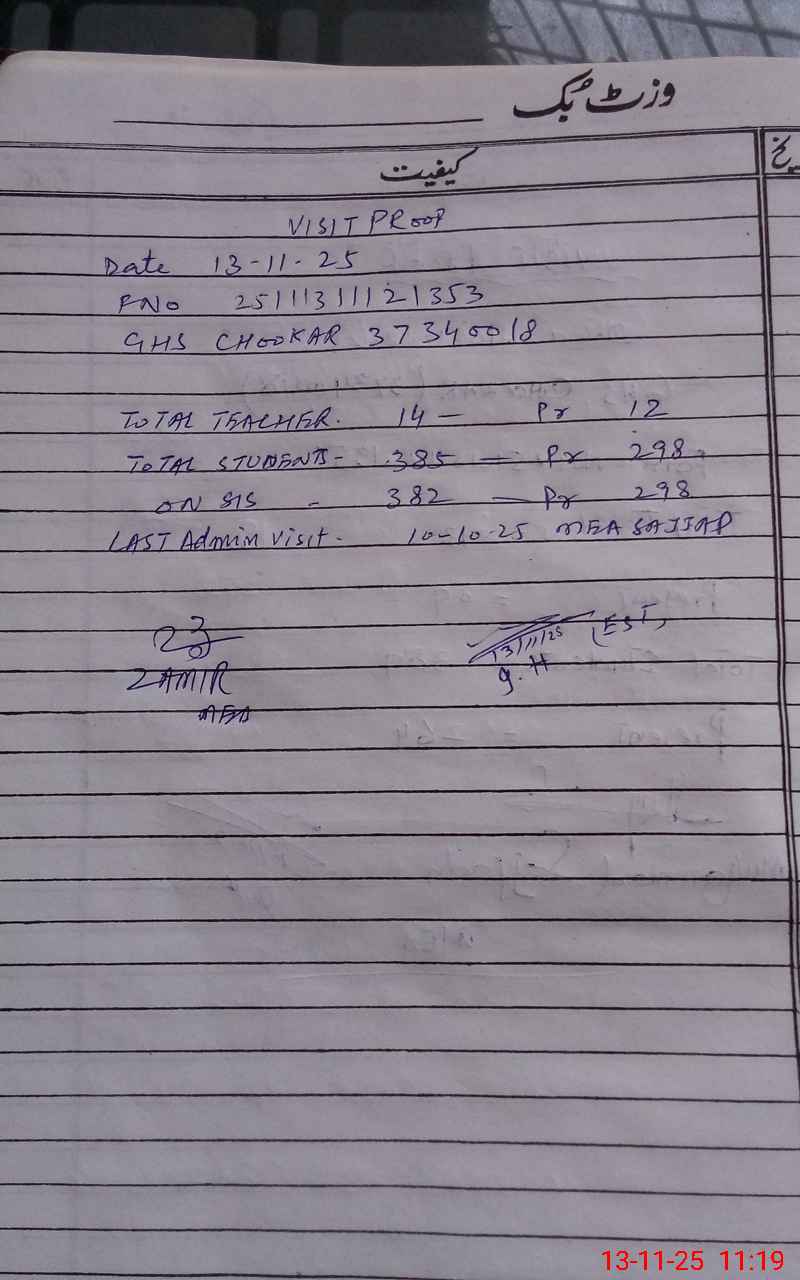 وزٹ بُک
کیفیت
VISIT PROOF
Date 13-11-25
FNO 25111311121353
GHS CHOOKAR 37340018
TOTAL TEACHER. 14 — Pr 12
TOTAL STUDENTS - 385 — Pr 298
ON SIS - 382 — Pr 298
LAST Admin visit. 10-10-25 MEA SAJJAD
13/11/25 (EST)
ZAMIR g.H
MEA
13-11-25 11:19